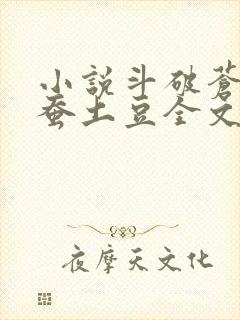 小説斗破蒼
蚕土豆全文
夜摩天文化